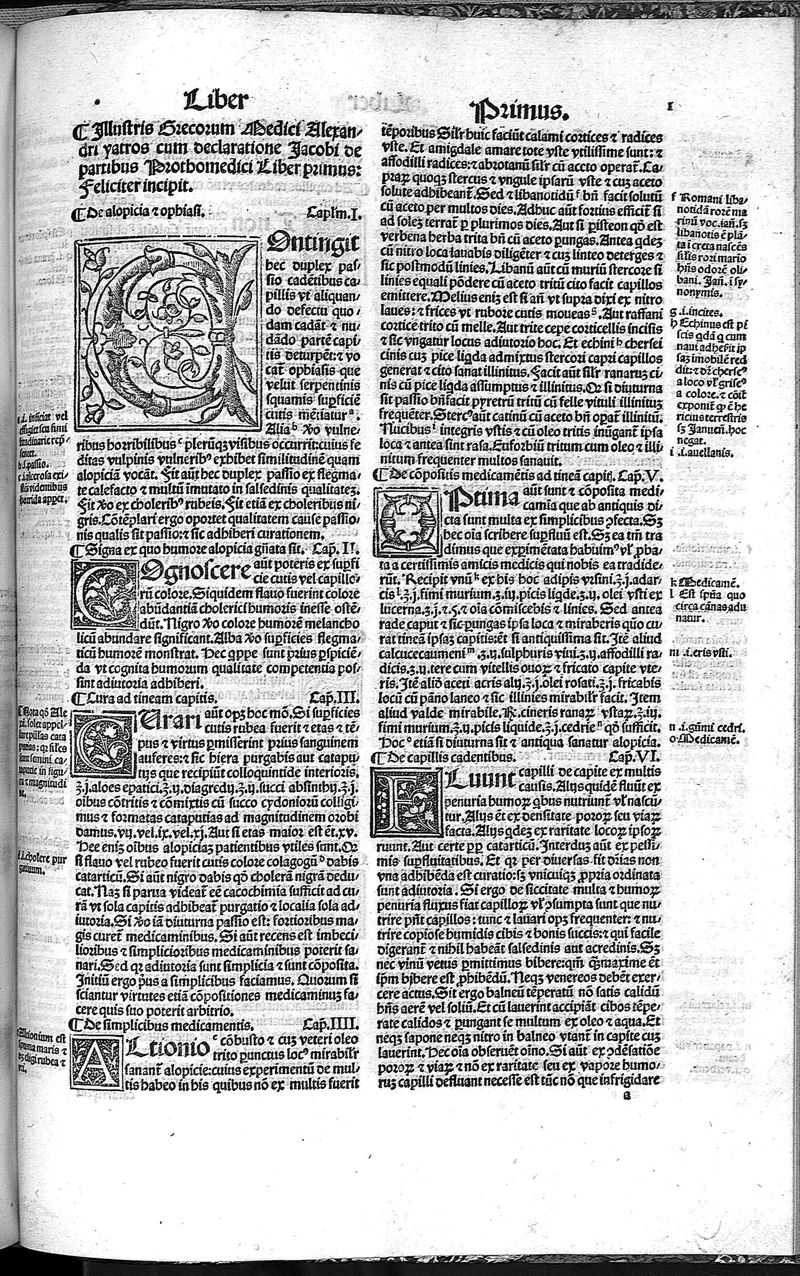 Liber
Primus.
1
¶ Illustris Grecorum Medici Alexan-
dri yatros cum declaratione Jacobi de
partibus Prothomedici Liber primus:
Feliciter incipit.
¶ De alopicia ⁊ ophiasi. Caplm̄.I.
COntingit
hec duplex pas-
sio cadētibus ca-
pillis vt aliquan-
do defectu quo-
dam cadāt ⁊ nu-
dādo partē capi-
tis deturpēt: ⁊ vo
cāt ophiasis que
velut serpentinis
squamis supficiē
cutis mētiatur.
Alia vo vulne-
ribus horribilibus plerūqꝫ visibus occurrit: cuius fe
ditas vulpinis vulneribꝰ exhibet similitudinē quam
alopiciā vocāt. Fit aūt hec duplex passio ex flegma-
te calefacto ⁊ multū imutato in salsedinis qualitateꝫ.
Fit vo ex choleribꝰ rubeis. Fit etiā ex choleribus ni-
gris. Cōtēplari ergo oportet qualitatem cause passio-
nis qualis sit passio: ⁊ sic adhiberi curationem.
¶ Signa ex quo humore alopicia gn̄ata sit. Cap. II.
COgnoscere aūt poteris ex supfi
cie cutis vel capillo-
rū colore. Siquidem flauo fuerint colore
abūdantiā cholerici humoris inesse ostē-
dūt. Nigro vo colore humorē melancho
licū abundare significant. Alba vo supficies flegma-
ticū humorē monstrat. Hec qppe sunt prius pspiciē-
da vt cognita humorum qualitate competentia pos-
sint adiutoria adhiberi.
¶ Cura ad tineam capitis. Cap.III.
CUrari aūt opꝫ hoc mō. Si supficies
cutis rubea fuerit ⁊ etas ⁊ tē-
pus ⁊ virtus pmiserint prius sanguinem
auferes: ⁊ sic hiera purgabis aut catapu
tijs que recipiūt colloquintide interioris.
ʒ.j. aloes epatici.ʒ.ij. diagredij.ʒ.ij. succi absinthij.ʒ.j.
oibus cōtritis ⁊ cōmixtis cū succo cydoniorū colligi
mus ⁊ formatas cataputias ad magnitudinem orobi
damus.vij.vel.ix.vel.xj. Aut si etas maior est ēt.xv.
Hee enim oibus alopiciaꝫ patientibus vtiles sunt. Or
si flauo vel rubeo fuerit cutis colore colagogū dabis
catarticū. Si aūt nigro dabis qd̄ cholerā nigrā dedu-
cat. Naꝫ si parua videat ēē cacochimia sufficit ad cu-
rā vt sola capitis adhibeat purgatio ⁊ localia sola ad-
iutoria. Si vo iā diuturna passio est: fortioribus ma-
gis curet medicaminibus. Si aūt recens est imbeci-
lioribus ⁊ simplicioribus medicaminibus poterit sa-
nari. Sed qr adiutoria sunt simplicia ⁊ sunt cōposita.
Initiū ergo pus a simplicibus faciamus. Quorum si
sciantur virtutes etiā cōpositiones medicaminuꝫ fa-
cere quis suo poterit arbitrio.
¶ De simplicibus medicamentis. Cap.IIII.
ALtionio cōbusto ⁊ cuꝫ veteri oleo
trito punctus locꝰ mirabilr
sanant alopicie: cuius experimentū de mul-
tis habeo in his quibus nō ex multis fuerit
tēporibus Silr huic faciūt calami cortices ⁊ radices
vste. Et amigdale amare tote vste vtilissime sunt: ⁊
affodilli radices: ⁊ abrotanū silr cū aceto operat̄. Ca-
praꝝ quoqꝫ stercus ⁊ vngule ipsarū vste ⁊ cuꝫ aceto
solute adhibeant̄. Sed ⁊ libanotidū bn̄ facit solutū
cū aceto per multos dies. Adhuc aūt fortius efficit si
ad solez terrat̄ p plurimos dies. Aut si pisteon qd̄ est
verbena herba trita bn̄ cū aceto pungas. Antea qdeꝫ
cū nitro loca lauabis diligēter ⁊ cuꝫ linteo deterges ⁊
sic postmodū linies. Libanū aūt cū muriū stercore si
linies equali pōdere cū aceto tritū cito facit capillos
emittere. Melius eniꝫ est si an̄ vt supra dixi ex nitro
laues: ⁊ frices vt rubore cutis moueas. Aut raffani
cortice trito cū melle. Aut trite cepe corticellis incisis
⁊ sic vngatur locus adiutorio hoc. Et echini chersei
cinis cuꝫ pice liqda admixtus stercori capri capillos
generat ⁊ cito sanat illinitus. Facit aūt silr ranaruꝫ ci-
nis cū pice liqda assumptus ⁊ illinitus. Or si diuturna
sit passio bn̄facit pyretrū tritū cū felle vituli illinituꝫ
frequēter. Stercꝰ aūt catinū cū aceto bn̄ opat̄ illinitū.
Nucibus integris vstis ⁊ cū oleo tritis inūgant̄ ipsa
loca ⁊ antea sint rasa. Euforbiū tritum cum oleo ⁊ illi-
nitum frequenter multos sanauit.
¶ De cōpositis medicamētis ad tineā capiṫ. Cap.V.
OPtima aūt sunt ⁊ cōposita medi
camīa que ab antiquis di
cta sunt multa ex simplicibus ꝯfecta. Sꝫ
hec oīa scribere supfluū est. Sꝫ ea tm̄ tra
dimus que expimētata habuimꝰ vl̓ pba-
ta a certissimis amicis medicis qui nobis ea tradide-
rūt. Recipit vnū ex his hoc adipis vrsini.ʒ.j. adar-
cis.ʒ.j. fimi murium.ʒ.iij. picis liqde.ʒ.ij. olei vsti ex
lucerna.ʒ.j.⁊.s. ⁊ oīa cōmiscebis ⁊ linies. Sed antea
rade caput ⁊ sic pungas ipsa loca ⁊ miraberis quo cu-
rat tineā ipsaꝫ capitis: ēt si antiquissima sit. Itē aliud
calcucecaumeni.ʒ.ij. sulphuris viui.ʒ.ij. affodilli ra-
dicis.ʒ.ij. tere cum vitellis ouoꝝ ⁊ fricato capite vte-
ris. Itē aliō aceti acris alij.ʒ.j. olei rosati.ʒ.j. fricabis
locū cū pāno laneo ⁊ sic illinies mirabilr facit. Item
aliud valde mirabile. R. cineris ranaꝝ vstaꝝ.ʒ.iij.
fimi murium.ʒ.ij. picis liquide.ʒ.j. cedrie qd̄ sufficit.
Hoc etiā si diuturna sit ⁊ antiqua sanatur alopicia.
¶ De capillis cadentibus. Cap.VI.
FLuunt capilli de capite ex multis
causis. Alijs quidē fluūt ex
penuria humorꝝ qbus nutriunt̄ vl̓ nascū-
tur. Alijs ēt ex densitate poroꝝ seu viarꝝ
facta. Alijs qdeꝫ ex raritate locoꝝ ipsoꝝ
ruunt. Aut certe pp catarticū. Interduꝫ aut ex pessi-
mis supfluitatibus. Et qr per diuersas fit dr̄ias non
vna adhibēda est curatio: sꝫ vnicuiqꝫ ppria ordinata
sunt adiutoria. Si ergo de siccitate multa ⁊ humorꝝ
penuria fluxus fiat capilloꝝ vl̓ ꝯsumpta sunt que nu-
trire pn̄t capillos: tunc ⁊ lauari opꝫ frequenter: ⁊ nu-
trire copiose humidis cibis ⁊ bonis succis: ⁊ qui facile
digerant̄ ⁊ nihil habeāt salsedinis aut acredinis. Sꝫ
nec vinū vetus pmittimus bibere: qm̄ qꝫmaxime ēt
ipm̄ bibere est phibēdū. Neqꝫ venereos debēt exer-
cere actus. Sit ergo balneū tēperatū nō satis calidū
hn̄s aerē vel soliū. Et cū lauerint accipiāt cibos tēpe-
rate calidos ⁊ pungant se multum ex oleo ⁊ aqua. Et
neqꝫ sapone neqꝫ nitro in balneo vtant̄ in capite cuꝫ
lauerint. Hec oīa obseruēt oīno. Si aūt ex ꝯdēsatiōe
poroꝝ ⁊ viaꝝ ⁊ nō ex raritate seu ex vapore humo-
ruꝫ capilli defluant necesse est tūc nō que infrigidare
a
f Romani liba-
notidā rorē ma
rinū voc. ian̄. sꝫ
libanotis ē plā-
ta i creta nascēs
silis rori marino
hn̄s odorē oli-
bani. Jan̄. i sy-
nonymis.
g .i. incites.
h Echinus est pi
scis qdā q cum
naui adheserit ip
saꝫ imobilē red
dit: ⁊ dr̄ cherseꝰ
a loco vl̓ griseꝰ
a colore. ⁊ cōit̄
exponit̄ p hē he
ricius terrestris
sꝫ Januen̄. hoc
negat.
i .i. auellanis.
k Medicamē.
l Est spūa quo
circa cānas adu
natur.
m .i. eris vsti.
n .i. gūmi cedri.
o Medicamē.